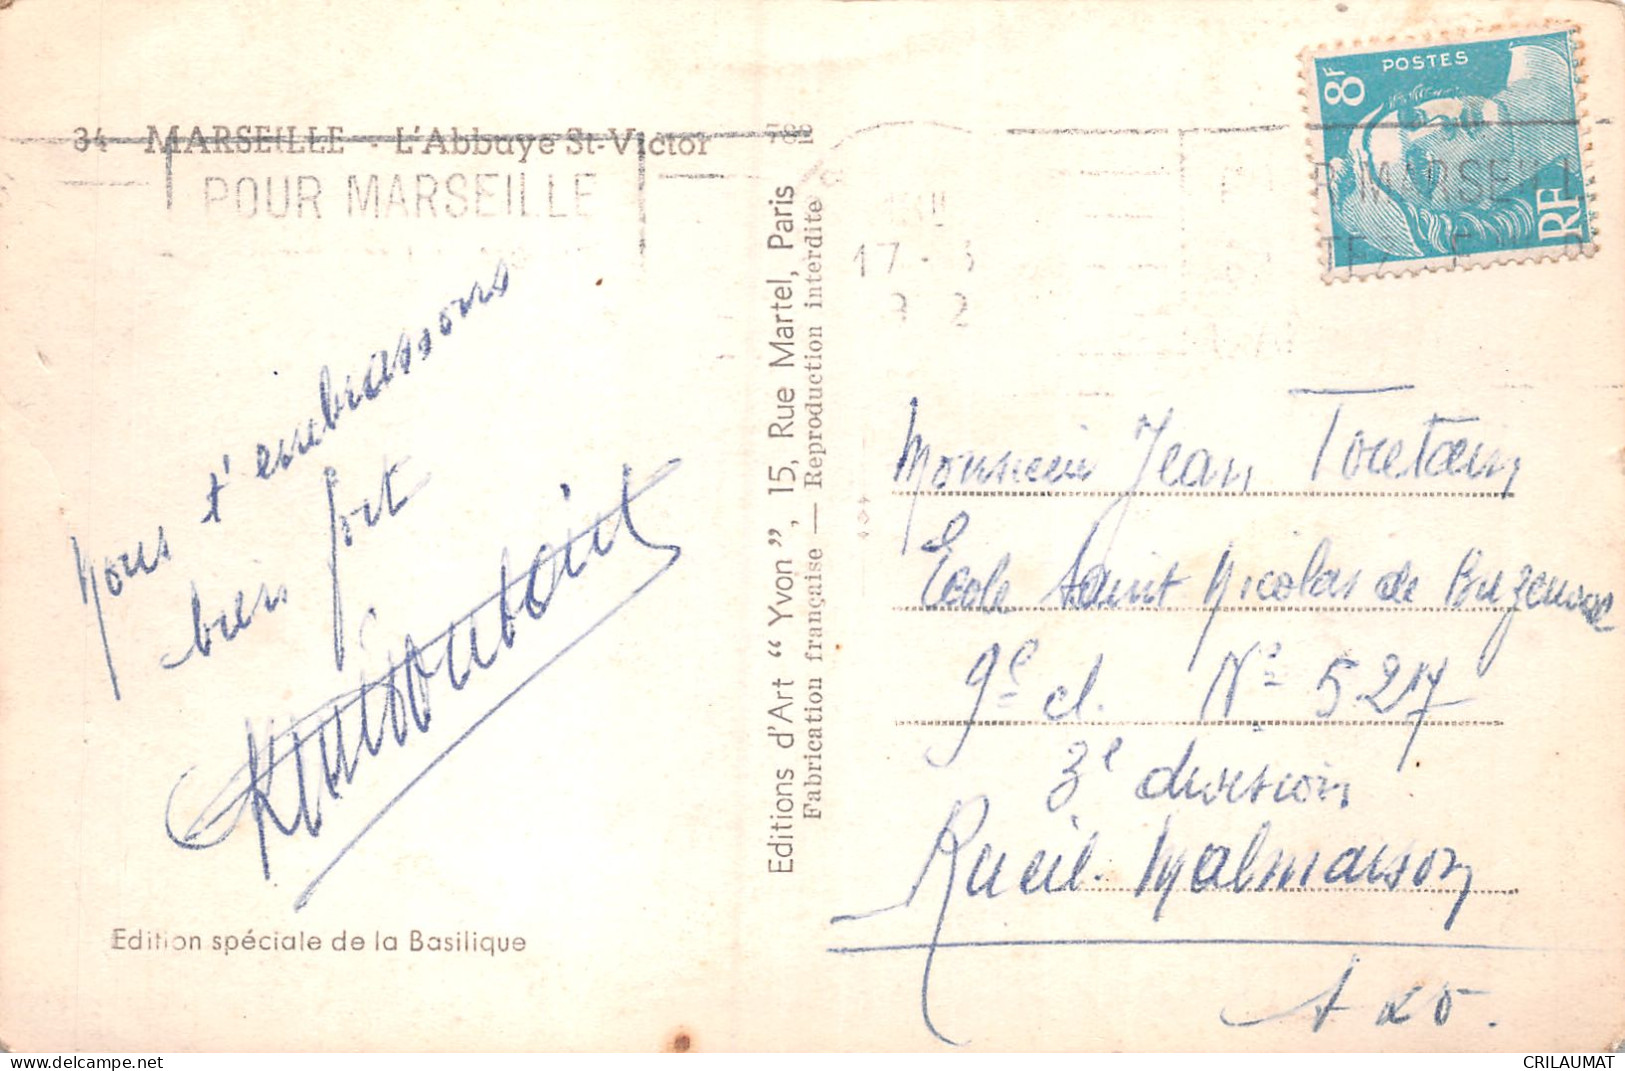 34 MARSEILLE - L'Abbaye St-Victor
POUR MARSEILLE
Nous t'embrassons
bien fort
Edition spéciale de la Basilique
Editions d'Art “ Yvon ”, 15, Rue Martel, Paris
Fabrication française — Reproduction interdite
17 -
POSTES
8F
RF
MARSEILL
Monsieur Jean
Ecole Saint Nicolas de Buzenval
9e cl. No 5217
3e division
Rueil-Malmaison
CRILAUMAT